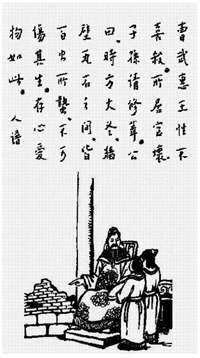 曹武惠王性不
喜殺。所居室壞。
子孫請修葺。公
曰。時方大冬。牆
壁瓦石之間。皆
百虫所蟄。不可
傷其生。存心愛
物如此。 人譜